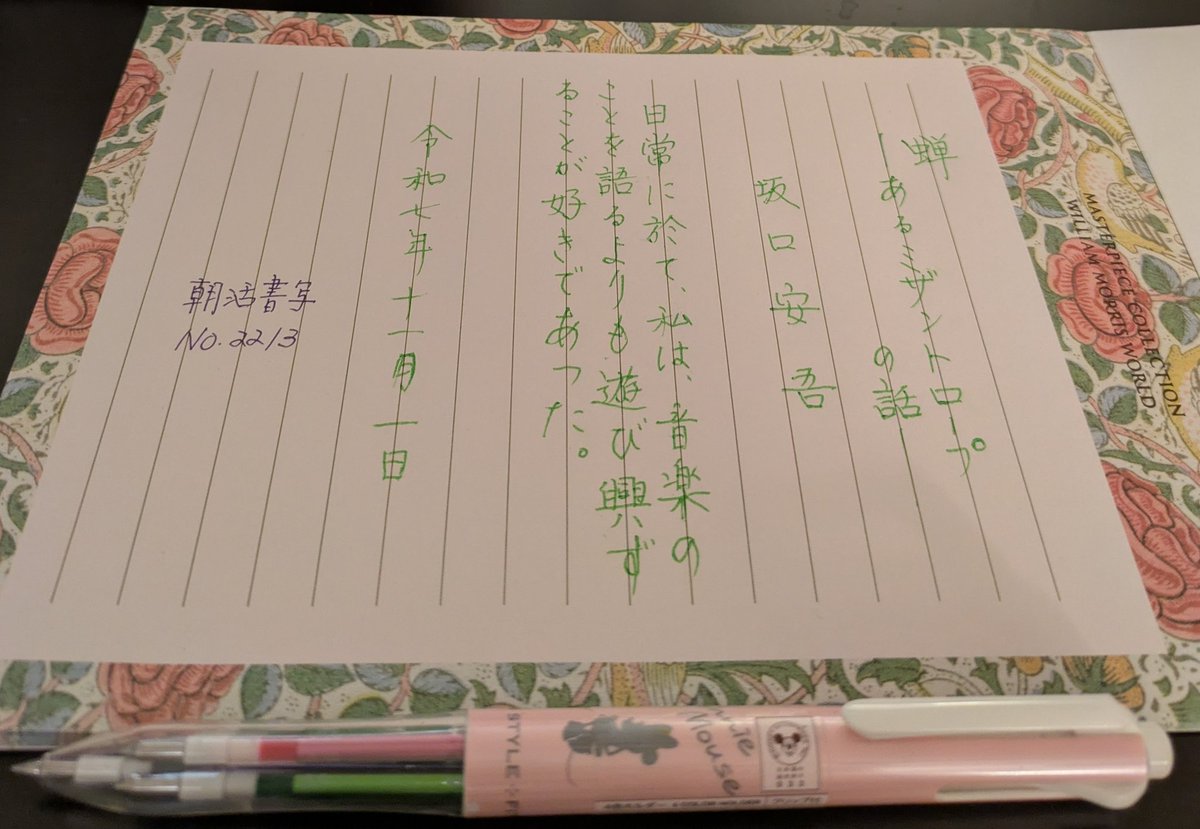 蝉
―あるミザントロープ
の話―
坂口安吾
日常に於て、私は、音楽の
ことを語るよりも遊び興ず
ることが好きであった。
令和七年十一月一日
朝活書写
NO.2213
MASTERPIECE COLLECTION
WILLIAM MORRIS WORLD
STYLE
Mouse